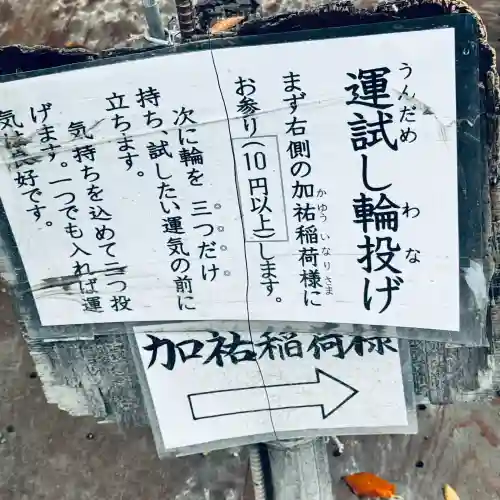 運試し輪投げ
うんだめ わな
まず右側の加祐稲荷様に
かゆういなりさま
お参り(10円以上)します。
次に輪を 三つだけ
持ち、試したい運気の前に
立ちます。
気持ちを込めて三つ投
げます。一つでも入れば運
気は良好です。
加祐稲荷様